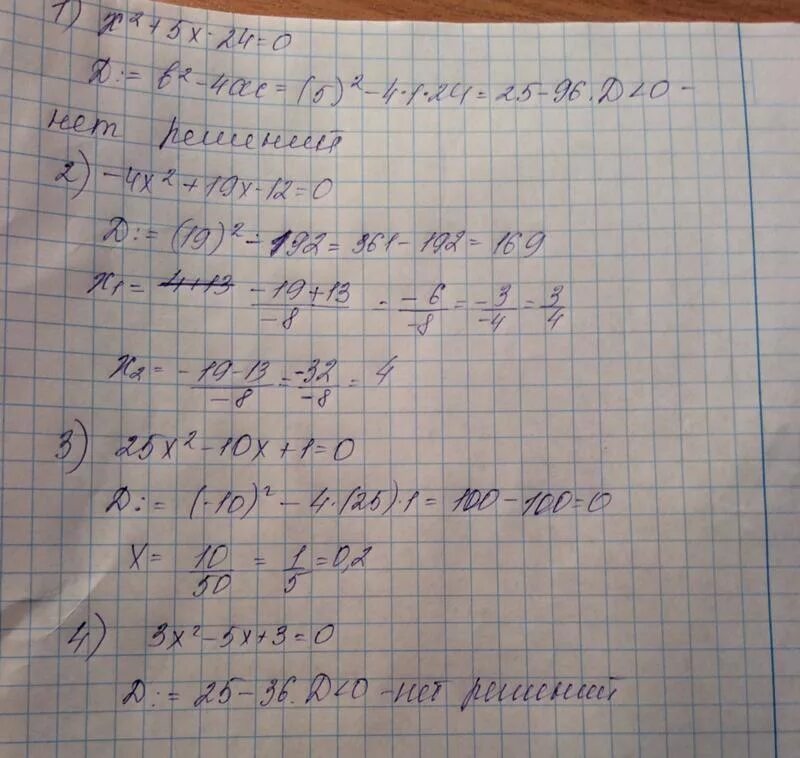 1) x² + 5x - 24 = 0
D := b² - 4ac = (5)² - 4·1·24 = 25 - 96. D < 0 -
нет решений
2) -4x² + 19x - 12 = 0
D := (19)² - 192 = 361 - 192 = 169
x₁ = 4+13 (-19+13)/(-8) = (-6)/(-8) = (-3)/(-4) = 3/4
x₂ = (-19-13)/(-8) = (-32)/(-8) = 4
3) 25x² - 10x + 1 = 0
D := (-10)² - 4·(25)·1 = 100 - 100 = 0
x = 10/50 = 1/5 = 0,2
4) 3x² - 5x + 3 = 0
D := 25 - 36. D < 0 - нет решений